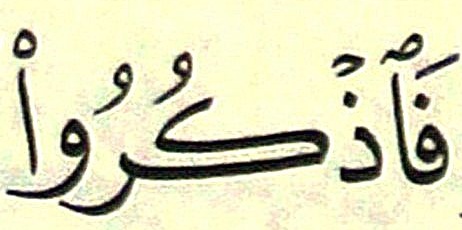 فَٱذۡكُرُواْ